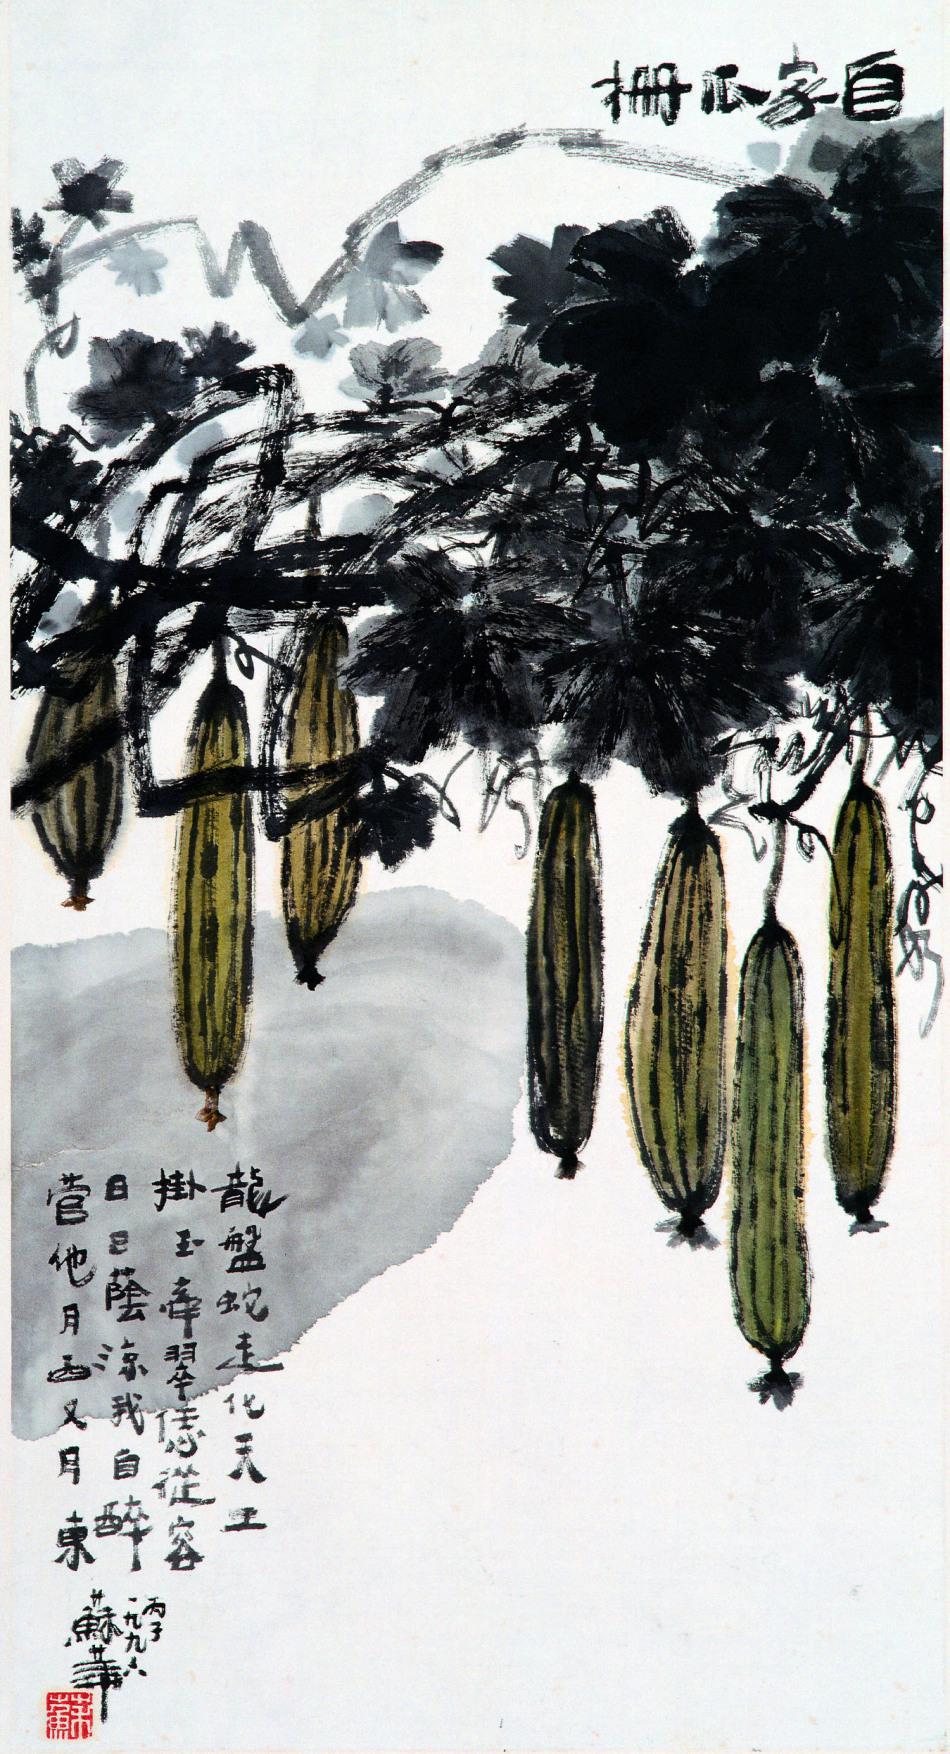 自家瓜柵
龍盤蛇走化天工
掛玉牽翠恁從容
日日蔭涼我自醉
管他月西又月東
丙子
一九九六
蘇華
蘇